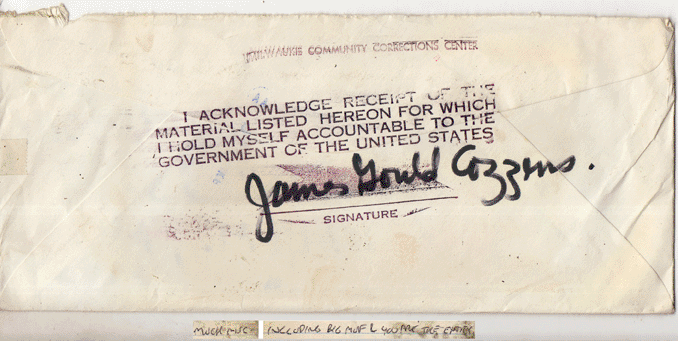 MILWAUKIE COMMUNITY CORRECTIONS CENTER
I ACKNOWLEDGE RECEIPT OF THE
MATERIAL LISTED HEREON FOR WHICH
I HOLD MYSELF ACCOUNTABLE TO THE
GOVERNMENT OF THE UNITED STATES
James Gould Cozzens.
SIGNATURE
INCLUDING BIG YOU ARE THE